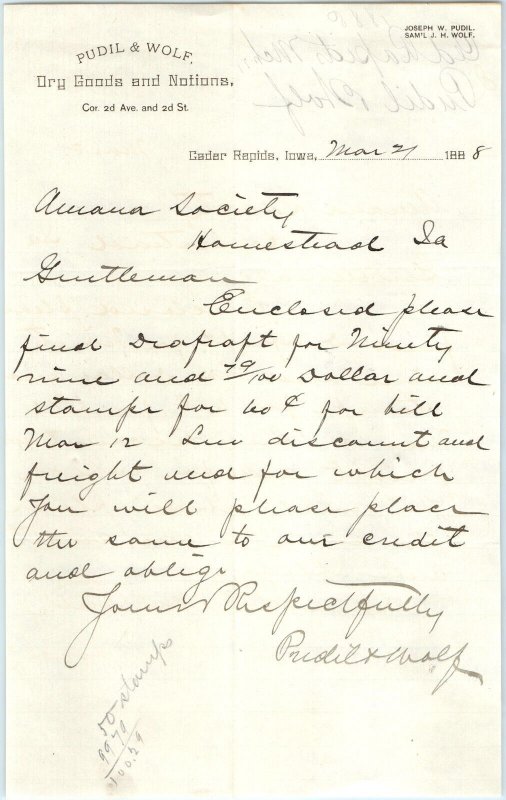 JOSEPH W. PUDIL.
SAM'L J. H. WOLF.
PUDIL & WOLF,
Dry Goods and Notions,
Cor. 2d Ave. and 2d St.
Cedar Rapids, Iowa, Mar 21 1888
Amana Society
Homestead Ia
Gentleman
Enclosed please
find Drafraft for Ninety
nine and 79/100 Dollar and
stamps for 60 ¢ for bill
Mar 12 Less discount and
freight and for which
You will please place
the same to our credit
and oblige
Yours Respectfully
Pudil & Wolf
50 stamps
9979
100.29